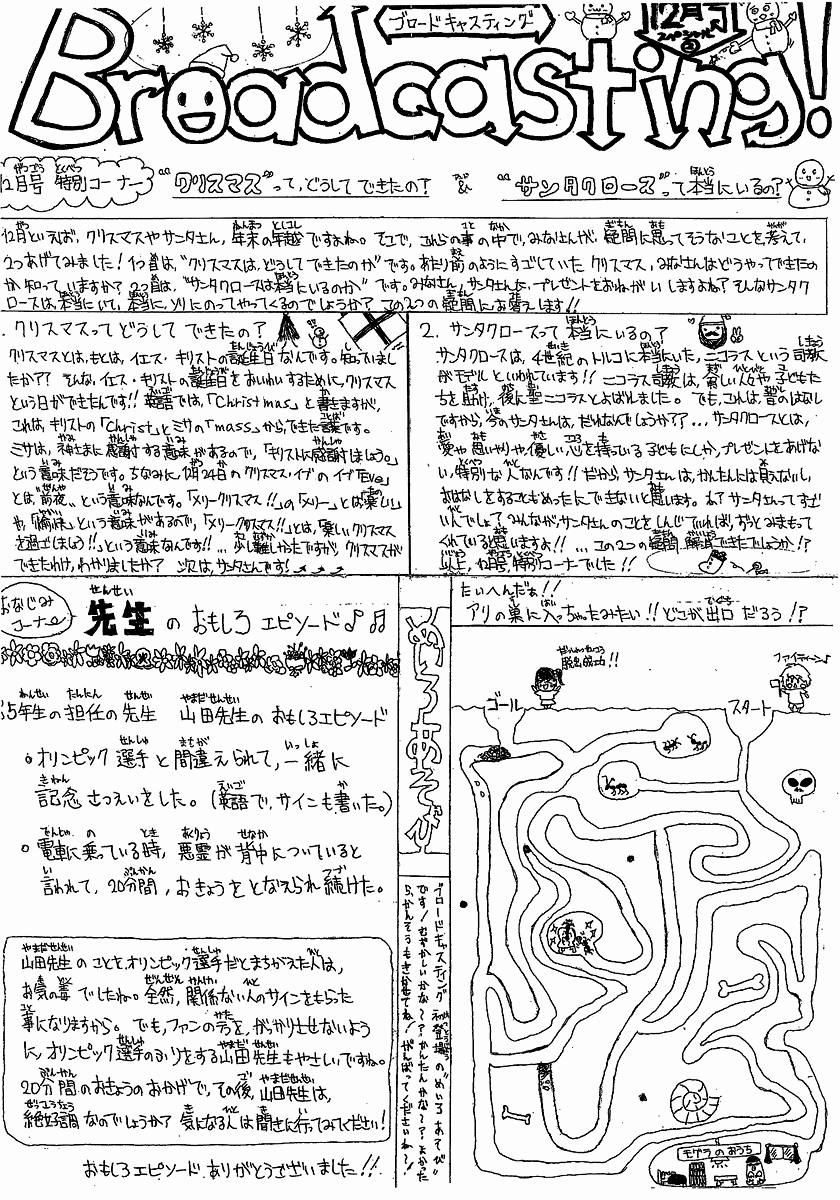 ブロードキャスティング
12月号
スペシャル
Broadcasting!
12月号 特別コーナー
"クリスマス"って、どうしてできたの?
&
"サンタクロース"って本当にいるの?
12月といえば、クリスマスやサンタさん、年末の年越ですよね。そこで、これらの事の中で、みなさんが、疑問に思ってそうなことを考えて、
2つあげてみました!1つ目は、"クリスマスは、どうしてできたのか"です。あたり前のようにすごしていたクリスマス、みなさんはどうやってできたの
か知っていますか?2つ目は、"サンタクロースは本当にいるのか"です。みなさん、サンタさんに、プレゼントをおねがいしますよね?そんなサンタク
ロースは、本当にいて、本当に、ソリにのってやってくるのでしょうか?この2つの疑問にお答えします!!
. クリスマスってどうしてできたの?
クリスマスとは、もとは、イエス・キリストの誕生日なんです。知っていまし
たか??そんな、イエス・キリストの誕生日をおいわいするために、クリスマス
という日ができたんです!!英語では、「Christmas」と書きますが、
これは、キリストの「Christ」とミサの「mass」からできた言葉です。
ミサは、神さまに感謝する意味があるので、「キリストに感謝しましょう。」
という意味だそうです。ちなみに、12月24日のクリスマス・イブのイブ「Eve」
とは"前夜"という意味なんです。「メリークリスマス!!」の「メリー」とは「楽しい」
や、「愉快」という意味があるので、「メリークリスマス!!」とは、「楽しいクリスマス
を過ごしましょう!!」という意味なんです!!…少し難しかったですが、クリスマスが
できたわけ、わかりましたか? 次は、サンタさんです!
2. サンタクロースって本当にいるの?
サンタクロースは、4世紀のトルコに本当にいた、ニコラスという司教
がモデルといわれています!!ニコラス司教は、貧しい人々や子どもた
ちを助け、後に聖ニコラスとよばれました。でも、これは、昔のはなし
ですから、今のサンタさんは、だれなんでしょうか??…サンタクロースとは、
愛や思いやりや優しい心を持っている子どもにしか、プレゼントをあげな
い、特別な人なんです!!だから、サンタさんは、かんたんには見えないし、
おはなしをすることもめったにできないと思います。ね?サンタさんってすご
い人でしょ?みんなが、サンタさんのことをしんじていれば、ずっとみまもって
くれていると思いますよ!!…この2つの疑問、解消できたでしょうか!?
以上、12月号、特別コーナーでした!!
おなじみ
コーナー
先生のおもしろエピソード♪♫
5年生の担任の先生 山田先生のおもしろエピソード
オリンピック選手と間違えられて、一緒に
記念さつえいをした。(英語で、サインも書いた。)
電車に乗っている時、悪霊が背中についていると
言われて、20分間、おきょうをとなえられ続けた。
山田先生のことを、オリンピック選手だとまちがえた人は、
お気の毒でしたね。全然、関係ない人のサインをもらった
事になりますから。でも、ファンの方を、がっかりさせないよう
に、オリンピック選手のふりをする山田先生もやさしいですね。
20分間のおきょうのおかげで、その後、山田先生は、
絶好調なのでしょうか?気になる人は聞きに行ってみてください!
おもしろエピソードありがとうございました!!
めいろあそび
ブロードキャスティング 初登場の"めいろあそび"
です!むずかしいかな~?かんたんかな~?よかった
ら、かんそうもきかせてね!がんばってくださいね~!
たいへんだぁ!!
アリの巣に入っちゃったみたい!!どこが出口だろう!?
脱出成功!!
ファイティーン♪
ゴール
スタート
モグラのおうち